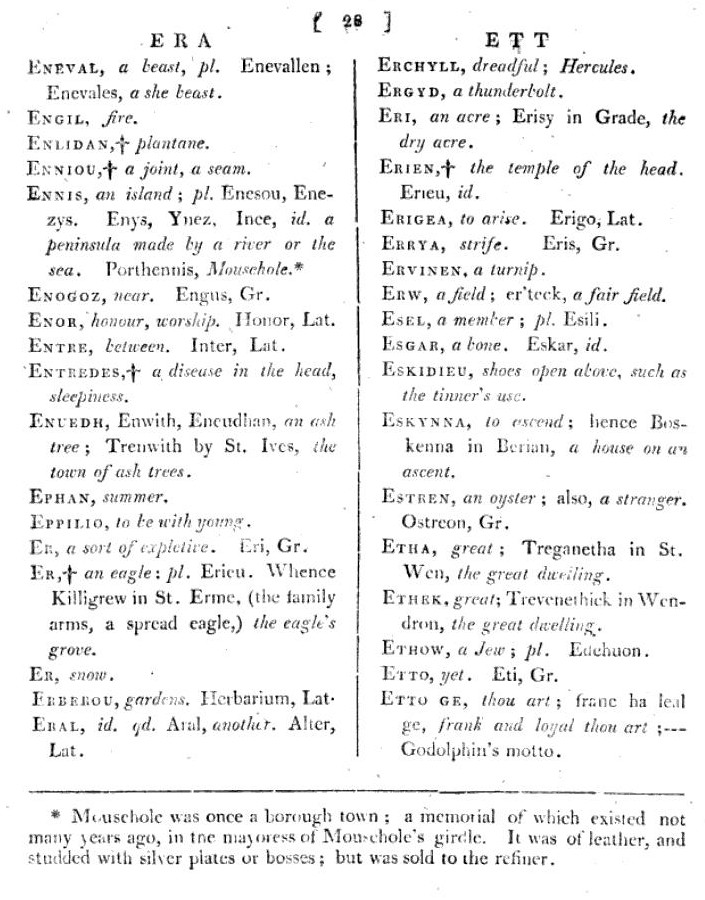 [ 28 ]
ERA
ENEVAL, a beast, pl. Enevallen ;
Enevales, a she beast.
ENGIL, fire.
ENLIDAN,† plantane.
ENNIOU,† a joint, a seam.
ENNIS, an island ; pl. Enesou, Ene-
zys. Enys, Ynez, Ince, id. a
peninsula made by a river or the
sea. Porthennis, Mousehole.*
ENOGOZ, near. Engus, Gr.
ENOR, honour, worship. Honor, Lat.
ENTRE, between. Inter, Lat.
ENTREDES,† a disease in the head,
sleepiness.
ENUEDH, Enwith, Eneudhan, an ash
tree ; Trenwith by St. Ives, the
town of ash trees.
EPHAN, summer.
EPPILIO, to be with young.
ER, a sort of expletive. Eri, Gr.
ER,† an eagle : pl. Erieu. Whence
Killigrew in St. Erme, (the family
arms, a spread eagle,) the eagle's
grove.
ER, snow.
ERBEROU, gardens. Herbarium, Lat.
ERAL, id. qd. Aral, another. Alter,
Lat.
ETT
ERCHYLL, dreadful ; Hercules.
ERGYD, a thunderbolt.
ERI, an acre ; Erisy in Grade, the
dry acre.
ERIEN,† the temple of the head.
Erieu, id.
ERIGEA, to arise. Erigo, Lat.
ERRYA, strife. Eris, Gr.
ERVINEN, a turnip.
ERW, a field ; er'teck, a fair field.
ESEL, a member ; pl. Esili.
ESGAR, a bone. Eskar, id.
ESKIDIEU, shoes open above, such as
the tinner's use.
ESKYNNA, to ascend ; hence Bos-
kenna in Berian, a house on an
ascent.
ESTREN, an oyster ; also, a stranger.
Ostreon, Gr.
ETHA, great ; Treganetha in St.
Wen, the great dwelling.
ETHEK, great; Trevenethick in Wen-
dron, the great dwelling.
ETHOW, a Jew ; pl. Edchuon.
ETTO, yet. Eti, Gr.
ETTO GE, thou art ; franc ha leal
ge, frank and loyal thou art ;---
Godolphin's motto.
* Mousehole was once a borough town ; a memorial of which existed not
many years ago, in the mayoress of Mousehole's girdle. It was of leather, and
studded with silver plates or bosses ; but was sold to the refiner.